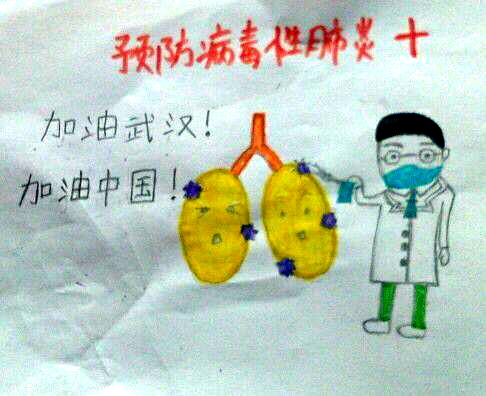 预防病毒性肺炎
加油武汉!
加油中国!